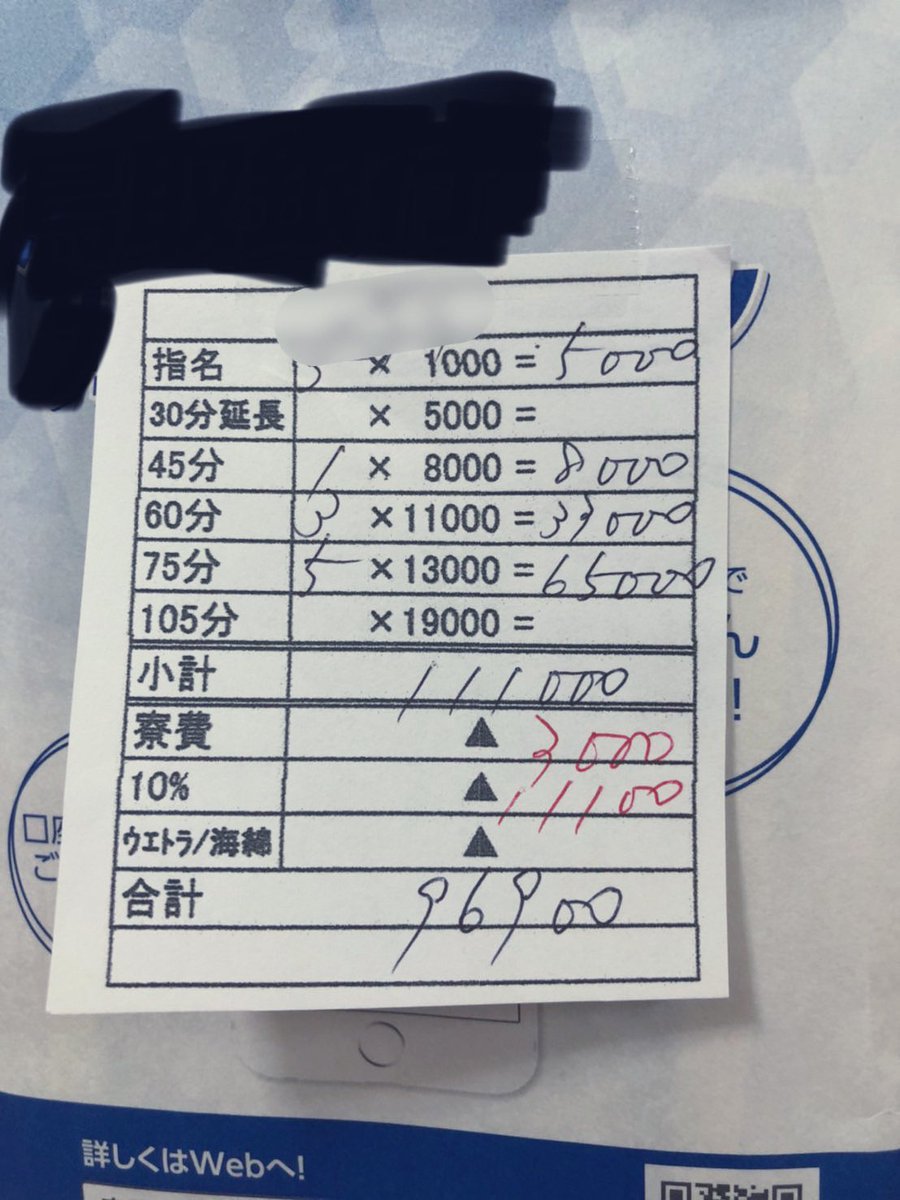 指名 5 × 1000 = 5000
30分延長 × 5000 =
45分 1 × 8000 = 8000
60分 3 ×11000 = 33000
75分 5 ×13000 = 65000
105分 ×19000 =
小計 111000
寮費 ▲ 3000
10% ▲ 11100
ウエトラ/海綿 ▲
合計 96900
で
!
口座
ご
詳しくはWebへ!